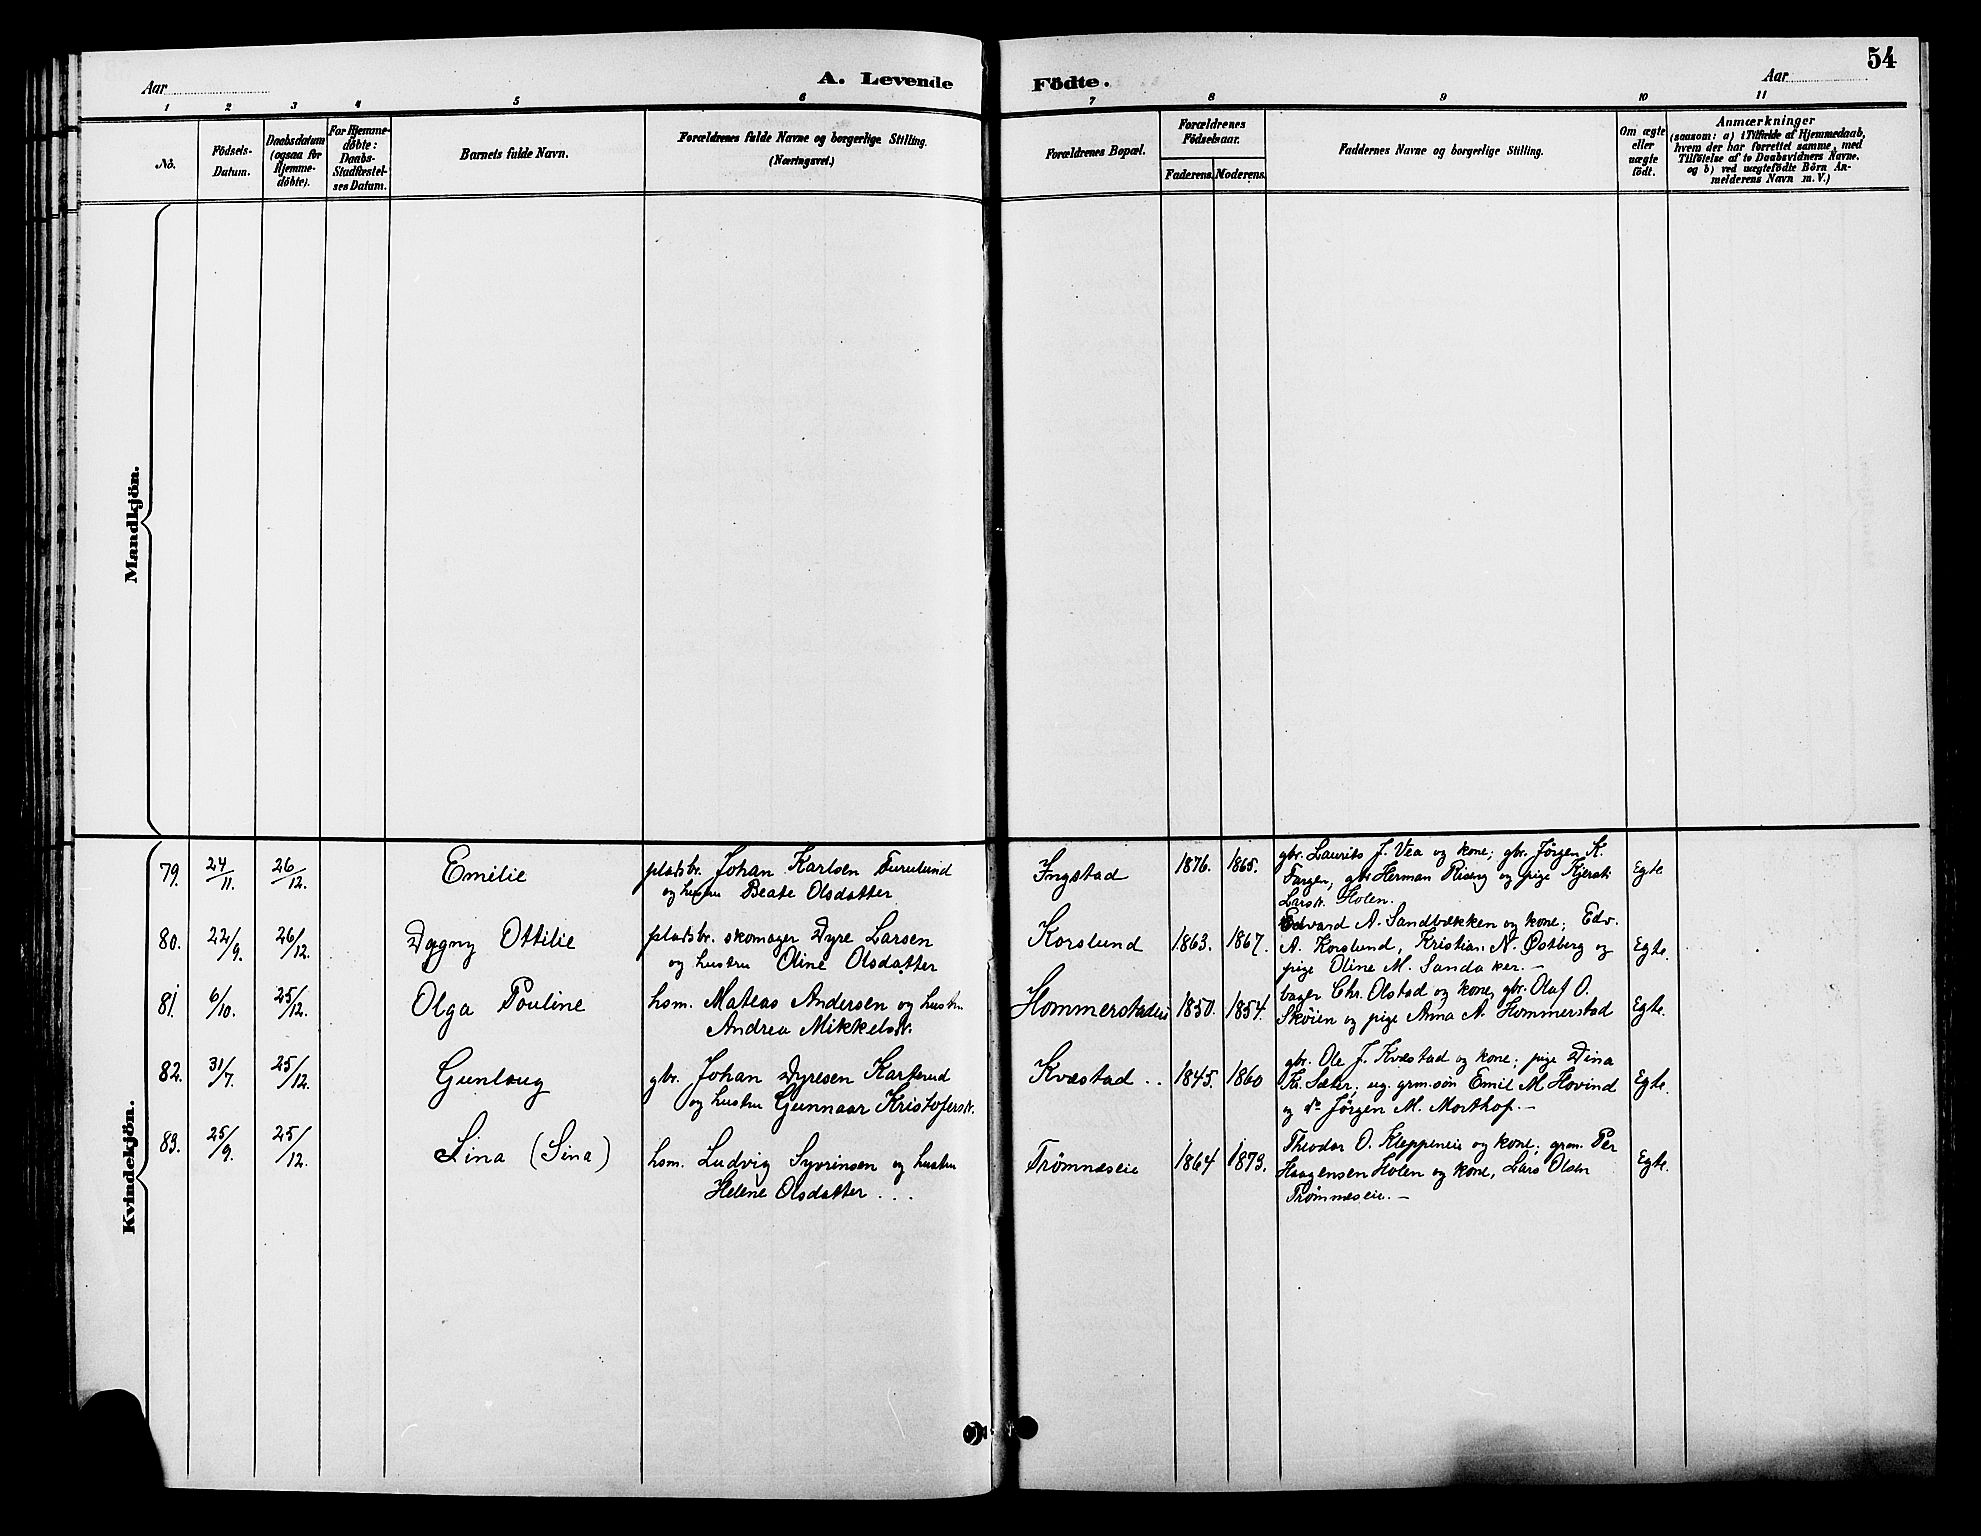 54
Aar
A. Levende
Födte.
Aar
1 2 3 4 5 6 7 8 9 10 11
No.
Födsels-
Datum.
Daabsdatum
(ogsaa for
Hjemme-
döbte).
For Hjemme-
döbte:
Daabs-
Stadfæstel-
ses Datum.
Barnets fulde Navn.
Forældrenes fulde Navne og borgerlige Stilling.
(Næringsvei.)
Forældrenes Bopæl.
Forældrenes
Födselsaar.
Faderens. Moderens.
Faddernes Navne og borgerlige Stilling.
Om ægte
eller
uægte
födt.
Anmærkninger
(saasom: a) i Tilfælde af Hjemmedaab,
hvem der har forrettet samme, med
Tilföielse af to Daabsvidners Navne.
og b) ved uægtefödte Börn An-
melderens Navn m. V.)
Mandkjön.
Kvindekjön.
79. 24/11. 26/12. Emilie
pladsbr. Johan Karlsen Furulund
og hustru Beate Olsdatter
Ingstad 1876. 1865.
gbr. Laurits J. Vea og kone; gbr. Jörgen K.
Fargen, gbr. Herman Riserg og pige Kjersti
Larsdr. Holen.
Egte
80. 22/9. 26/12. Dygny Ottilie
pladsbr. skomager Dyre Larsen
og hustru Oline Olsdatter
Korslund 1863. 1867.
Edvard A. Sandbækken og kone; Edv.
A. Korslund, Kristian N. Østberg og
pige Oline M. Sandaker. —
Egte.
81. 6/10. 25/12. Olga Pouline
hsm. Mateas Andersen og hustru
Andrea Mikkelsdr.
Hommerstadeie 1850. 1854.
bager Chr. Olstad og kone, gbr. Olaf O.
Skøien og pige Anna A. Hommerstad
Egte.
82. 31/7. 25/12. Gunlaug
gbr. Johan Dyresen Karterud
og hustru Gunnaar Kristofersdr.
Kvæstad .. 1845. 1860
gbr. Ole J. Kvæstad og kone; pige Dina
K. Sæter; ug. grm.søn Emil M. Hovind
og do Jørgen M. Morthof. —
Egte.
83. 25/9. 25/12. Sina (Sina)
hsm. Ludvig Syvrinsen og hustru
Helene Olsdatter . . .
Trömnæseie 1864 1873.
Theodor O. Kleppeneie og kone; grm. Per
Haagensen Holen og kone, Lars Olsen
Trömmeseie. —
Egte.